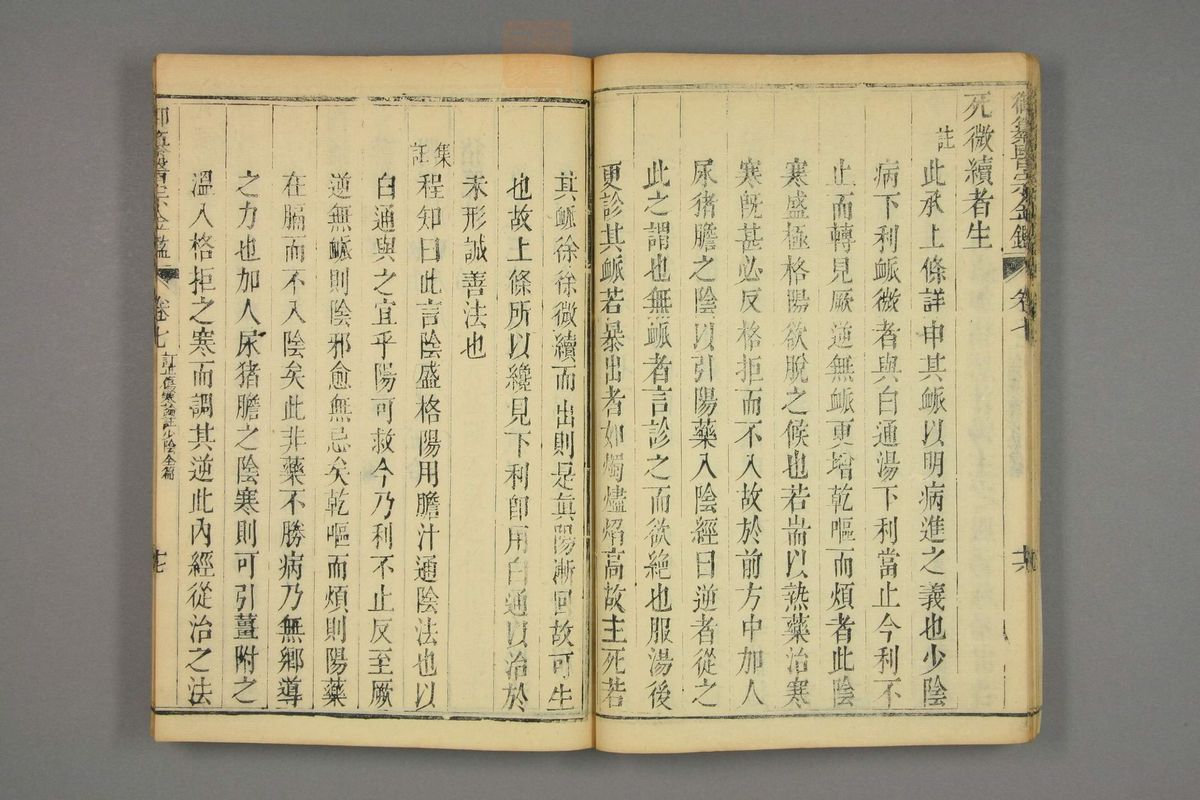 御纂醫宗金鑑 卷七
死微續者生
註
此承上條詳申其脈以明病進之義也少陰
病下利脈微者與白通湯下利當止今利不
止而轉見厥逆無脈更增乾嘔而煩者此陰
寒盛極格陽欲脫之候也若耑以熱藥治寒
寒旣甚必反格拒而不入故於前方中加人
尿猪膽之陰以引陽藥入陰經曰逆者從之
此之謂也無脈者言診之而欲絶也服湯後
更診其脈若暴出者如燭燼焰高故主死若
其脈徐徐微續而出則是眞陽漸回故可生
也故上條所以纔見下利卽用白通以治於
未形誠善法也
集註
程知曰此言陰盛格陽用膽汁通陰法也以
白通與之宜乎陽可救今乃利不止反至厥
逆無脈則陰邪愈無忌矣乾嘔而煩則陽藥
在膈而不入陰矣此非藥不勝病乃無鄕導
之力也加人尿猪膽之陰寒則可引薑附之
溫入格拒之寒而調其逆此內經從治之法
御纂醫宗金鑑 卷七 訂正傷寒論註少陰全篇